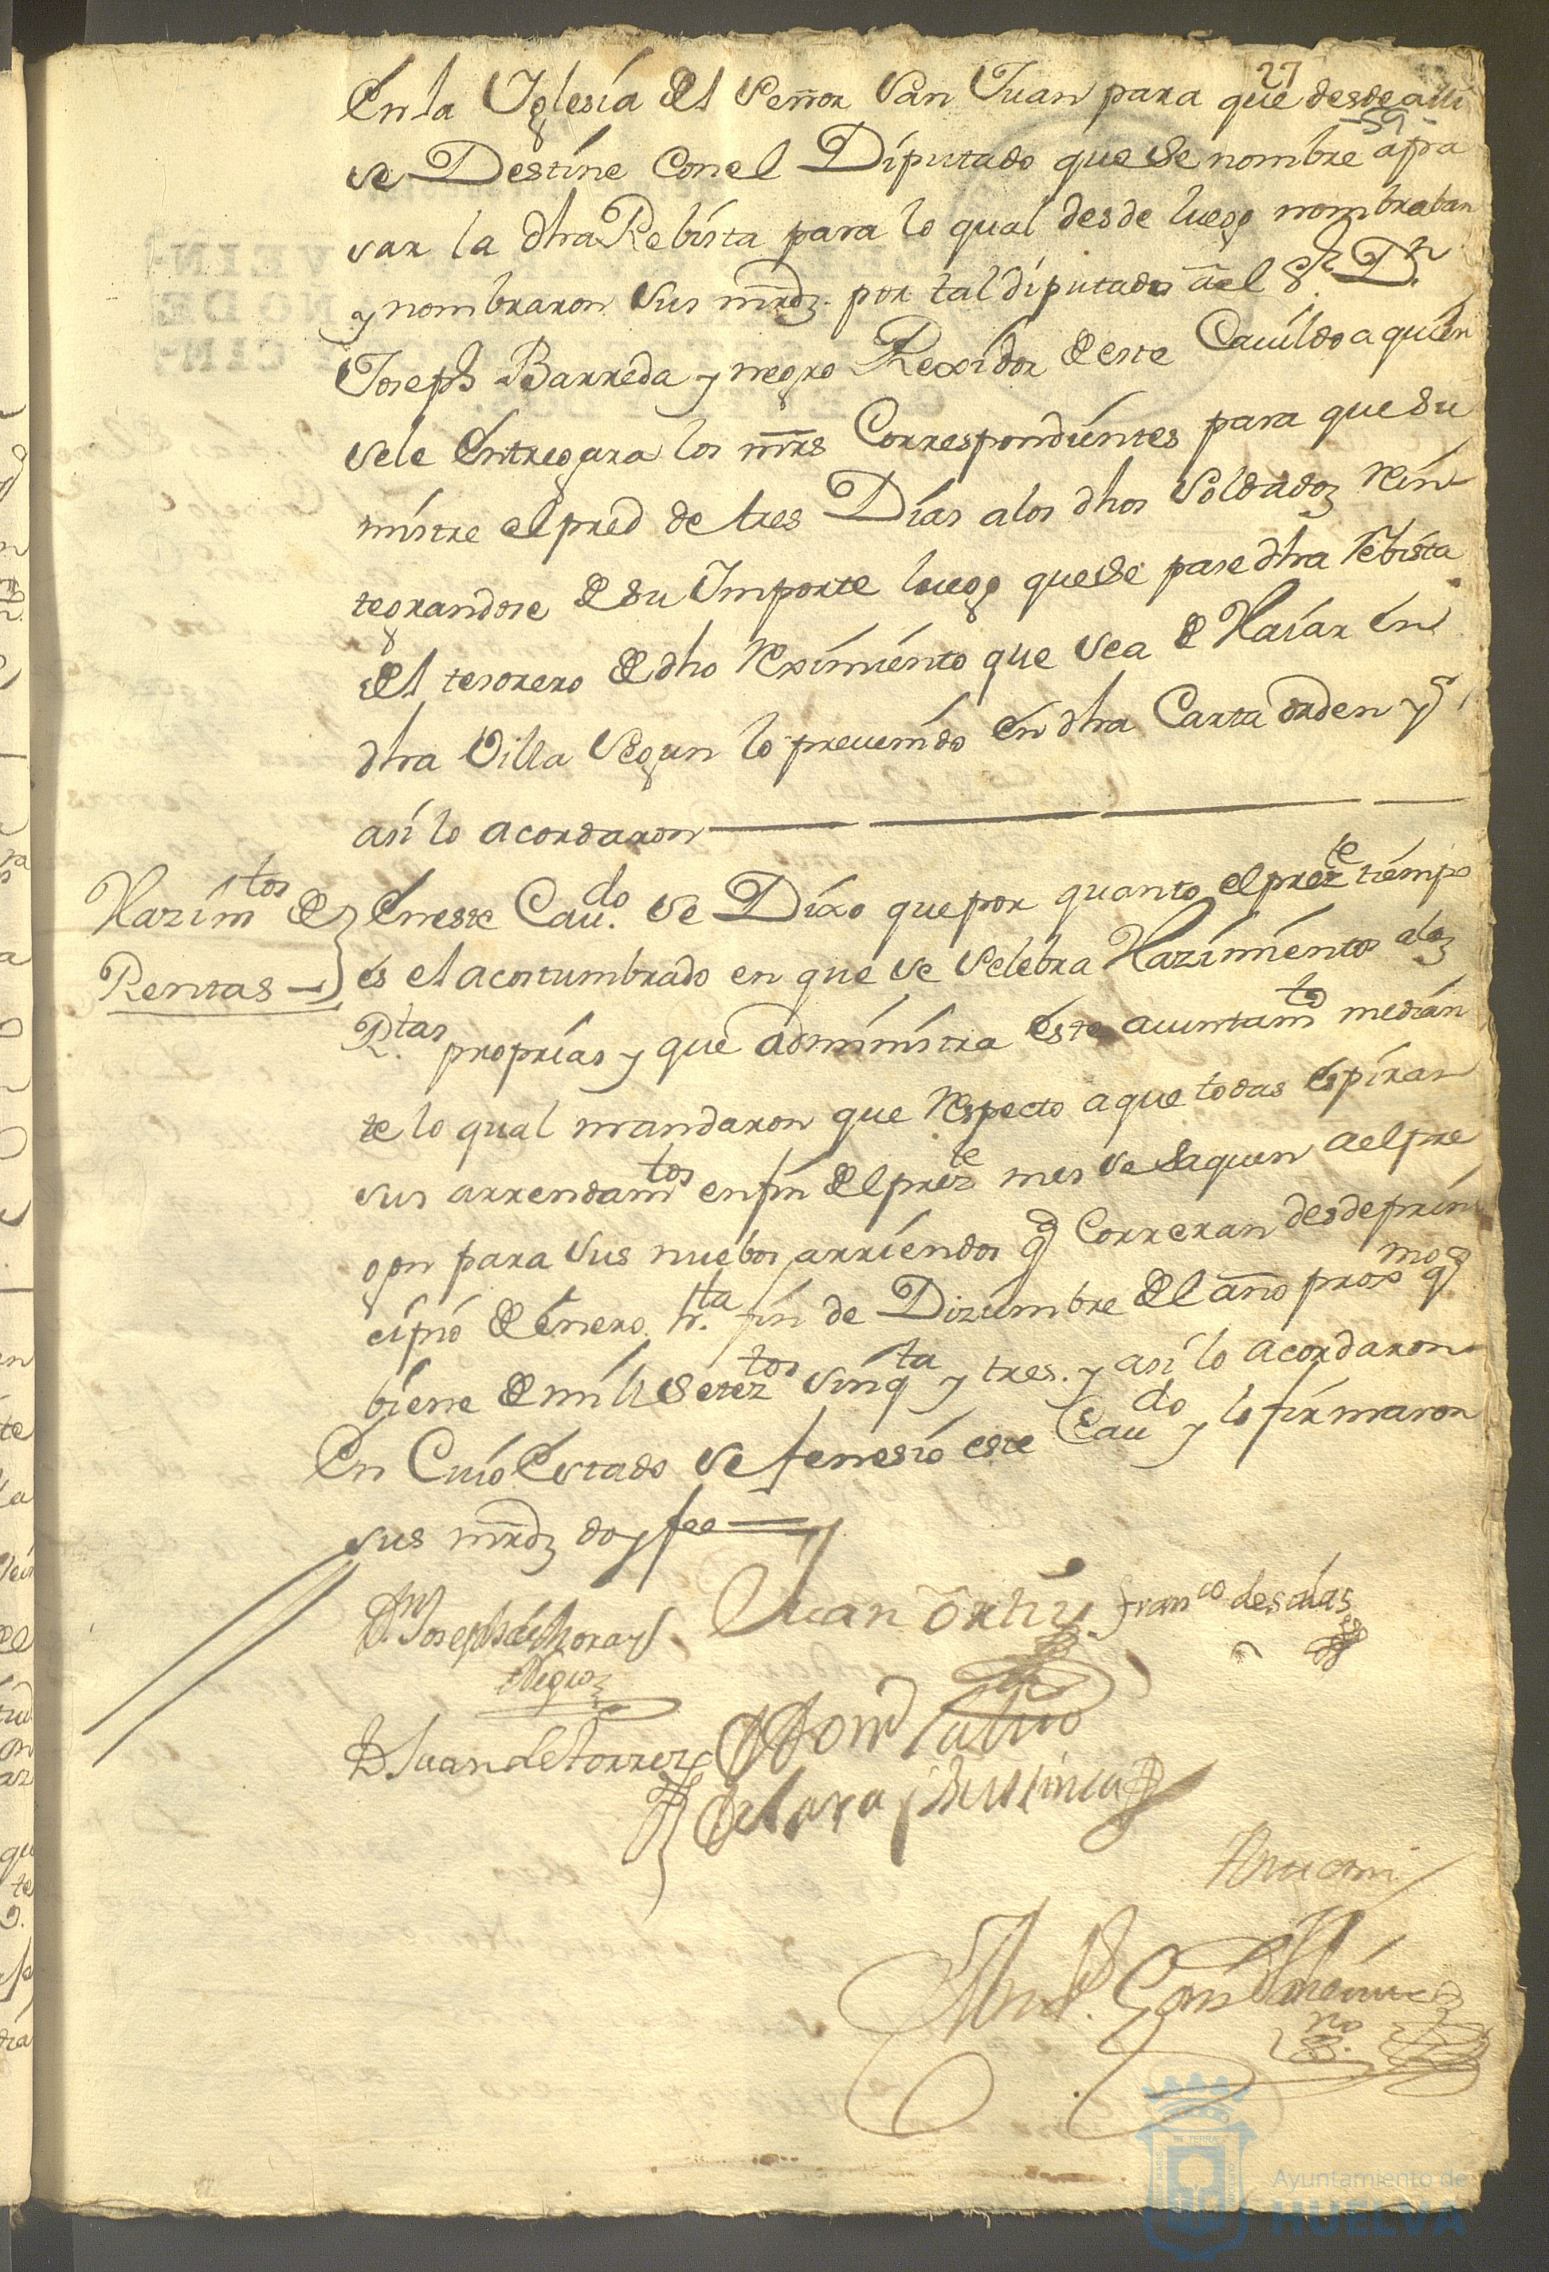 27
En la Yglesia del Señor San Juan para que desde alli
59
se Destine con el Diputado que se nombre a pa
sar la dha Rebista para lo qual desde luego nombraban
y nombraron sus mrdz. por tal diputado a el Sr. Dn.
Joseph Barreda y negro Rexidor de este Cauildo a quien
se le Entregara los mrs Correspondientes para que su
mistre el pred de tres Dias a los dhos Soldadoz Rein
tegrandose de su Importe luego que se pase dha Rebista
del tesorero de dho Reximiento que sea de Haiar en
dha Villa Segun lo preuenido en dha Carta orden y
asi lo acordaron
Hazimtos de
Rentas
En este Caudo. se Dixo que por quanto el preste tiempo
es el acostumbrado en que se Selebra Hazimientos a las
Rtas. proprias y que administra este aiuntamto median
te lo qual mandaron que Respecto a que todas espiran
sus arrendamtos en fin del preste mes se saquen a el pre
gon para sus nuebos arriendos q Correran desde prin
cipio de Enero hta. fin de Diziembre del año proxmo q
biene de mill Seteztos sinqta y tres. y asi lo acordaron
En Cuio Estado se fenesio este Caudo y lo firmaron
sus mrdz doy fee
Juan Ortiz
Franco de salas
Dn. Joseph
Negro
D Juan de torrez
de Lara
Ante mi
no
Ayuntamiento de
HUELVA